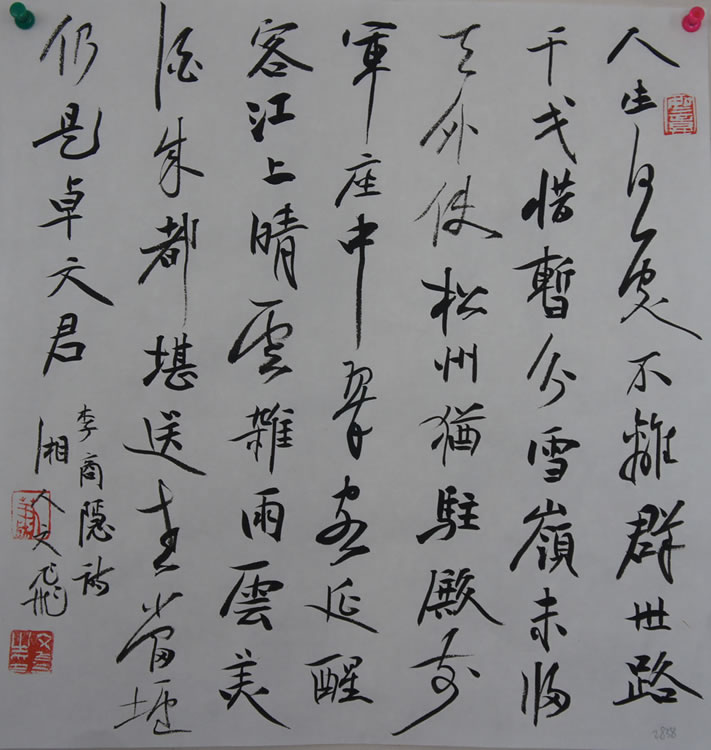 人生何處不離群世路
干戈惜暫分雪嶺未歸
天外使松州猶駐殿前
軍座中醉客延醒
客江上晴雲雜雨雲美
酒成都堪送老當壚
仍是卓文君
李商隱詩
湘人文飛